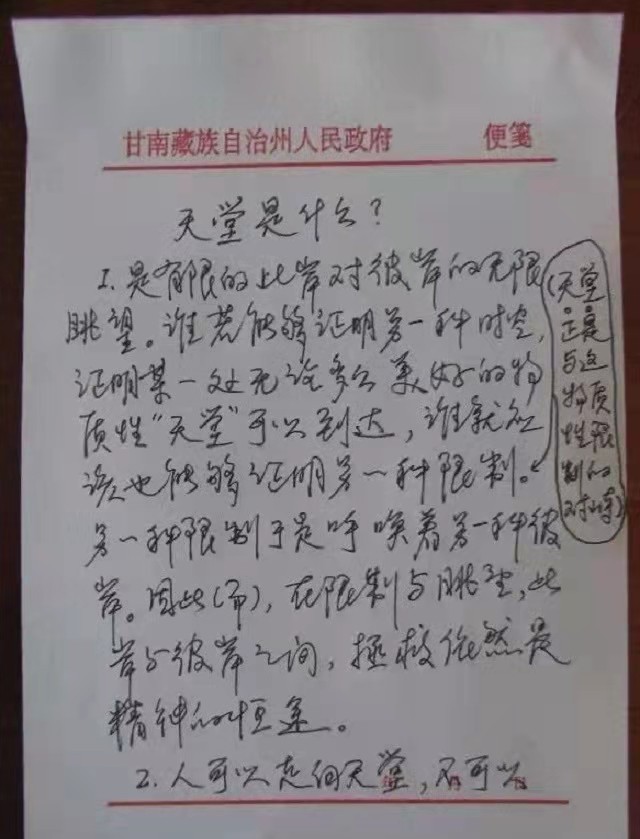 甘南藏族自治州人民政府 便笺
天堂是什么？
1.是有限的此岸对彼岸的无限
眺望。谁若能够证明另一种时空，
证明某一处无论多么美好的物
质性“天堂”可以到达，谁就应
该也能够证明另一种限制。
（天堂
正是
与这
物质
性限
制的
对峙）
另一种限制于是呼唤着另一种彼
岸。因此（而），在限制与眺望，此
岸与彼岸之间，拯救依然是
精神的恒途。
2.人可以走向天堂，不可以